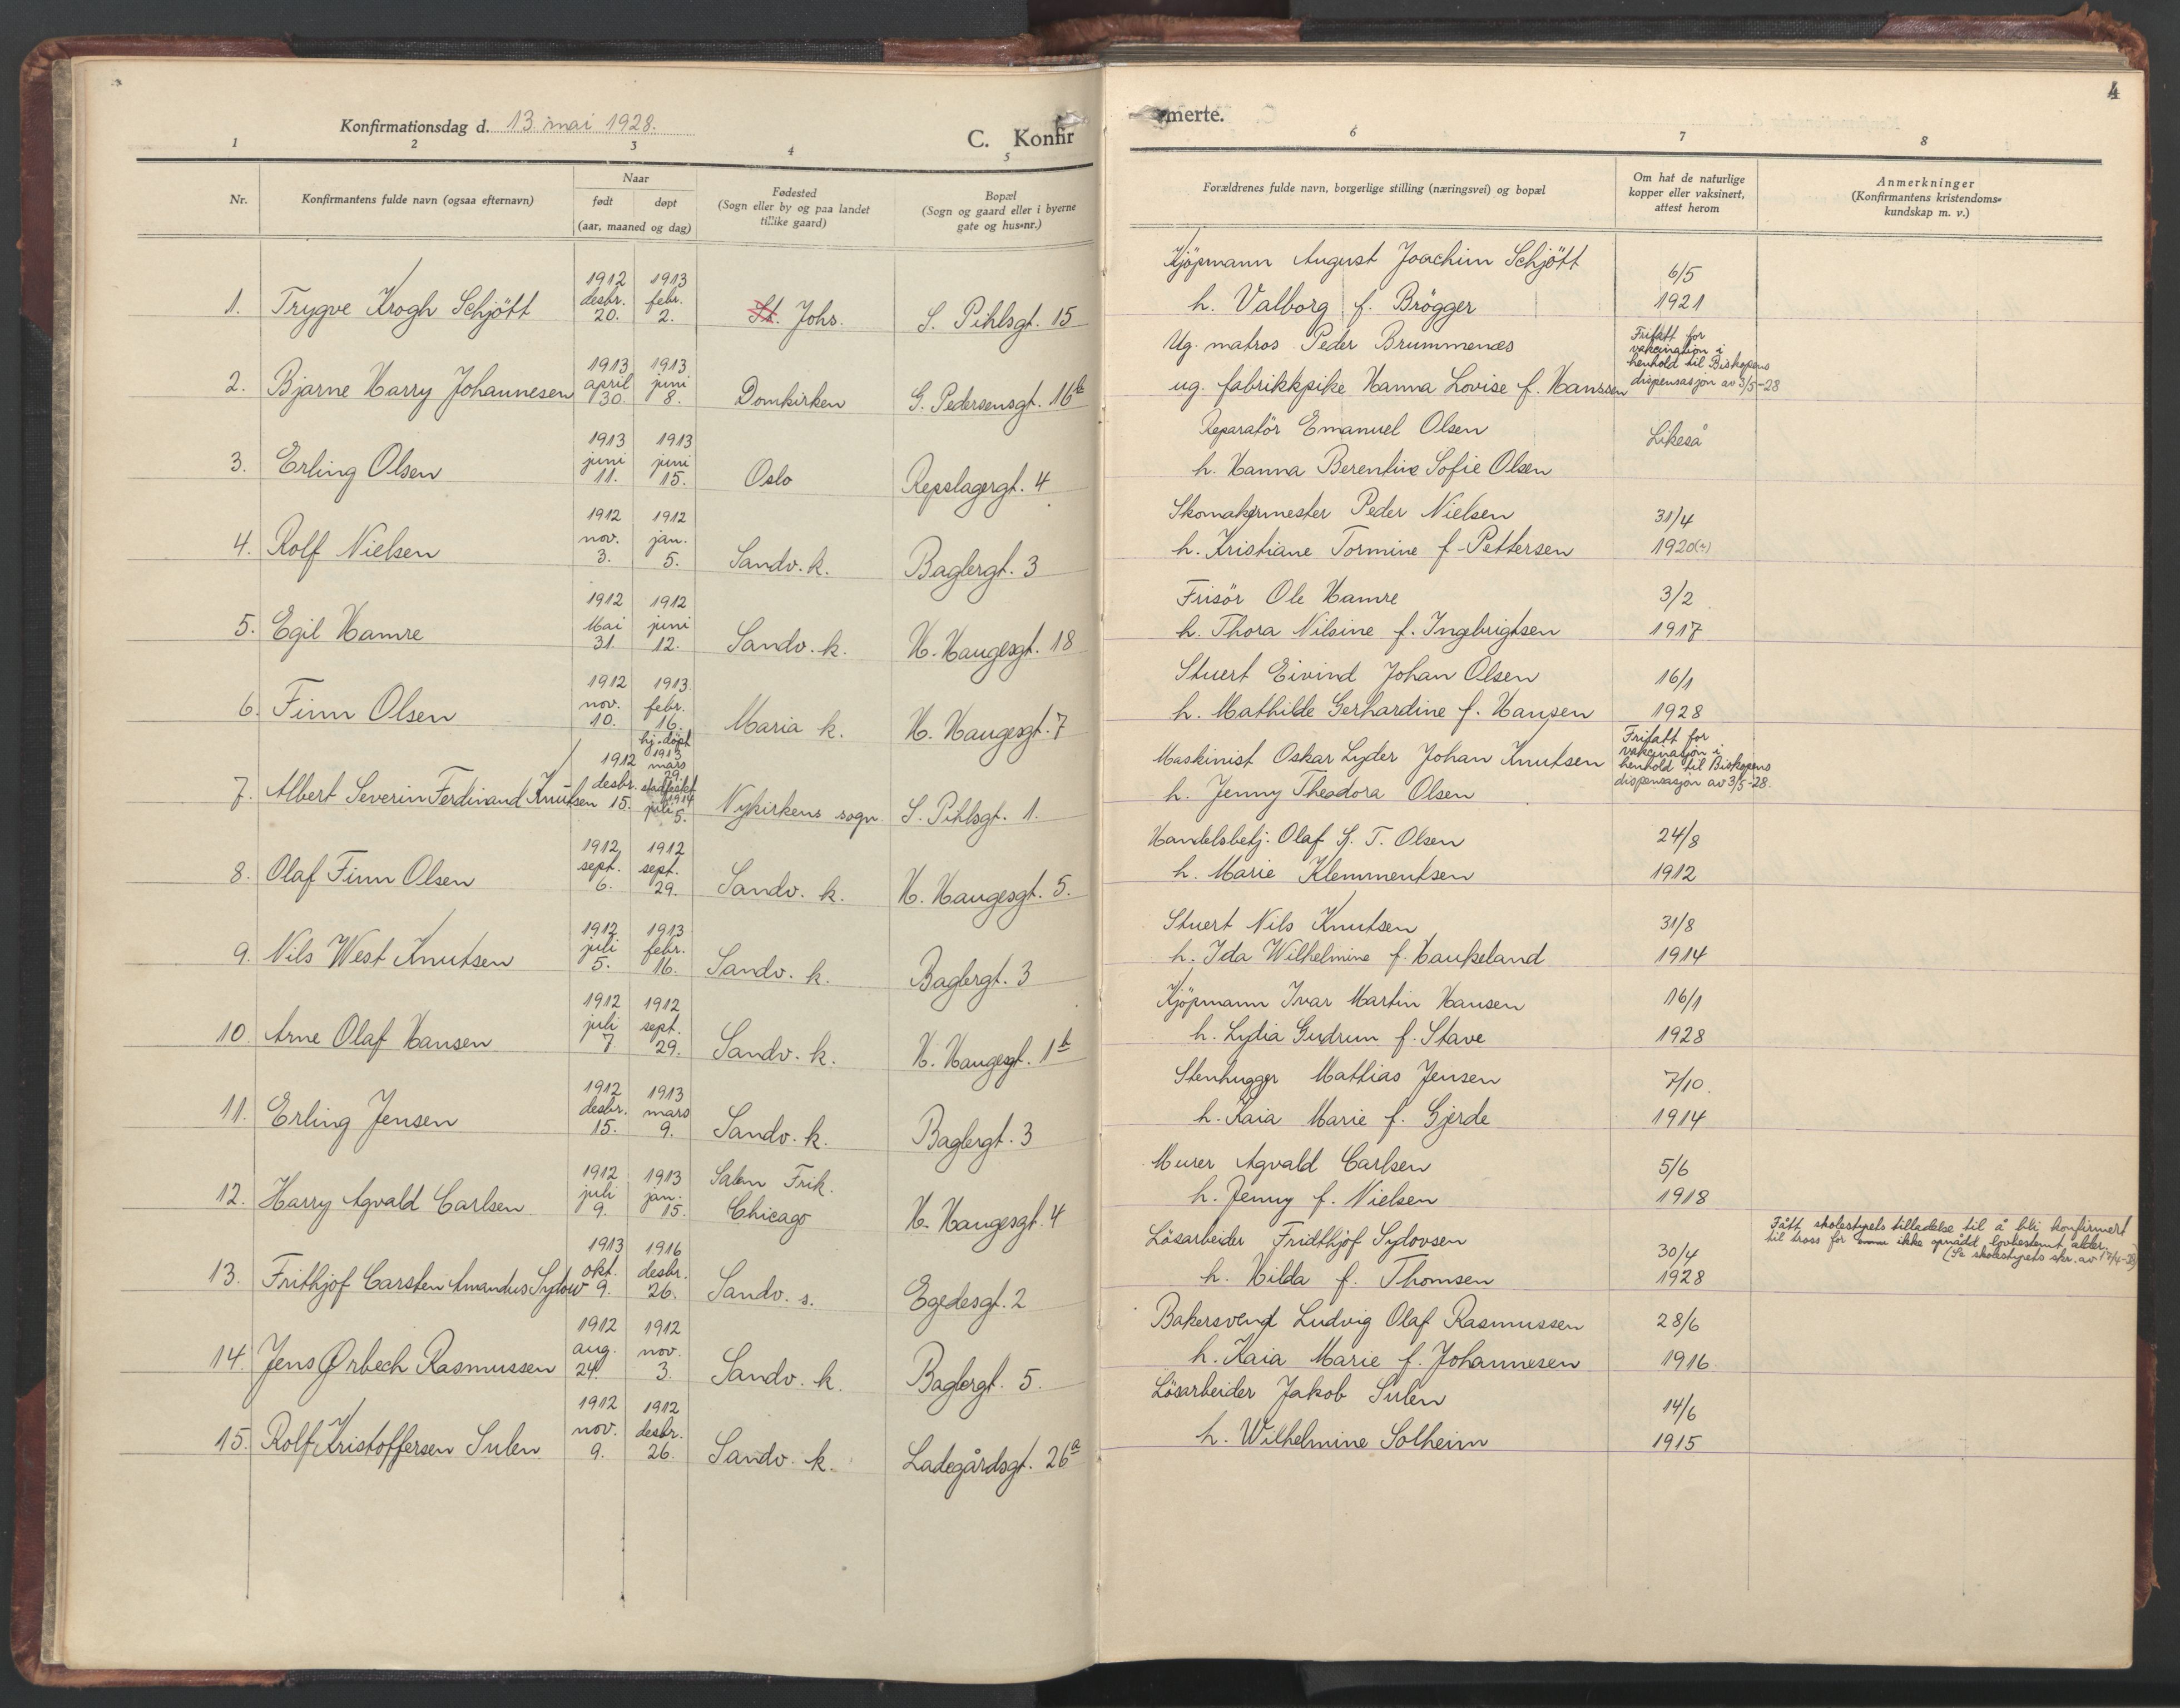 4
Konfirmationsdag d. 13. mai 1928.
C. Konfirmerte.
1 2 3 4 5 6 7 8
Nr.
Konfirmantens fulde navn (ogsaa efternavn)
Naar
født døpt
(aar, maaned og dag)
Fødested
(Sogn eller by og paa landet
tillike gaard)
Bopæl
(Sogn og gaard eller i byerne
gate og hus-nr.)
Forældrenes fulde navn, borgerlige stilling (næringsvei) og bopæl
Om hat de naturlige
kopper eller vaksinert,
attest herom
Anmerkninger
(Konfirmantens kristendoms-
kundskap m. v.)
1. Trygve Krogh Schjött
1912 desbr. 20.
1913 febr. 2.
St. Johs.
S. Pihlsgt. 15
Kjöpmann August Joachim Schjött
h. Valborg f. Brögger
6/5
1921
2. Bjarne Harry Johannesen
1913 april 30
1913 juni 8.
Domkirken
G. Pedersensgt. 16b
Ug. matros Peder Brummenæs
ug. fabrikkpike Hanna Lovise f. Hanssen
Fritatt for
vakcination i
henhold til Biskopens
dispensasjon av 3/5-28
3. Erling Olsen
1913 juni 11.
1913 juni 15.
Oslo
Repslagergt. 4
Reparatör Emanuel Olsen
h. Hanna Berentine Sofie Olsen
Likeså
4. Rolf Nielsen
1912 nov. 3.
1912 jan. 5.
Sandv. k.
Baglergt. 3
Skomakermester Peder Nielsen
h. Kristiane Tormine f. Pettersen
31/4
1920(4)
5. Egil Hamre
1912 Mai 31.
1912 juni 12.
Sandv. k.
H. Haugesgt. 18
Frisör Ole Hamre
h. Thora Nilsine f. Ingebrigtsen
3/2
1917
6. Finn Olsen
1912 nov. 10.
1913 febr. 16.
Maria k.
H. Haugesgt. 7
Stuert Eivind Johan Olsen
h. Mathilde Gerhardine f. Hansen
16/1
1928
7. Albert Severin Ferdinand Knutsen
1912 desbr. 15.
hj. döpt 1913 mars 29. stadfestet 1914 juli 5.
Nykirkens sogn
S. Pihlsgt. 1.
Maskinist Oskar Lyder Johan Knutsen
h. Jenny Theodora Olsen
Fritatt for
vakcinasjon i
henhold til Biskopens
dispensasjon av 3/5-28.
8. Olaf Finn Olsen
1912 sept. 6.
1912 sept. 29.
Sandv. k.
H. Haugesgt. 5.
Handelsbetj. Olaf G. T. Olsen
h. Marie Klemmentsen
24/8
1912
9. Nils West Knutsen
1912 juli 5.
1913 febr. 16.
Sandv. k.
Baglergt. 3
Stuert Nils Knutsen
h. Ida Wilhelmine f. Haukeland
31/8
1914
10. Arne Olaf Hansen
1912 juli 7
1912 sept. 29.
Sandv. k.
H. Haugesgt. 1b
Kjöpmann Ivar Martin Hansen
h. Lydia Gudrun f. Stave
16/1
1928
11. Erling Jensen
1912 desbr. 15.
1913 mars 9.
Sandv. k.
Baglergt. 3
Stenhugger Mathias Jensen
h. Kaia Marie f. Gjerde
7/10.
1914
12. Harry Agvald Carlsen
1912 juli 9.
1913 jan. 15.
Salem Frik.
Chicago
H. Haugesgt. 4
Murer Agvald Carlsen
h. Jenny f. Nielsen
5/6
1918
13. Frithjof Carsten Amandus Sydow
1913 okt. 9.
1916 desbr. 26.
Sandv. s.
Egedesgt. 2
Lösarbeider Fridthjof Sydovsen
h. Hilda f. Thomsen
30/4
1928
Fått skolestyrets tilladelse til å bli konfirmert
til tross for ikke opnådd lovbestemt alder.
(Se skolestyrets skr. av 17/4-28)
14. Jens Ørbech Rasmussen
1912 aug. 24.
1912 nov. 3.
Sandv. k.
Baglergt. 5.
Bakersvend Ludvig Olaf Rasmussen
h. Kaia Marie f. Johannesen
28/6
1916
15. Rolf Kristoffersen Sulen
1912 nov. 9.
1912 desbr. 26.
Sandv. k.
Ladegårdsgt. 26a
Lösarbeider Jakob Sulen
h. Wilhelmine Solheim
14/6
1915